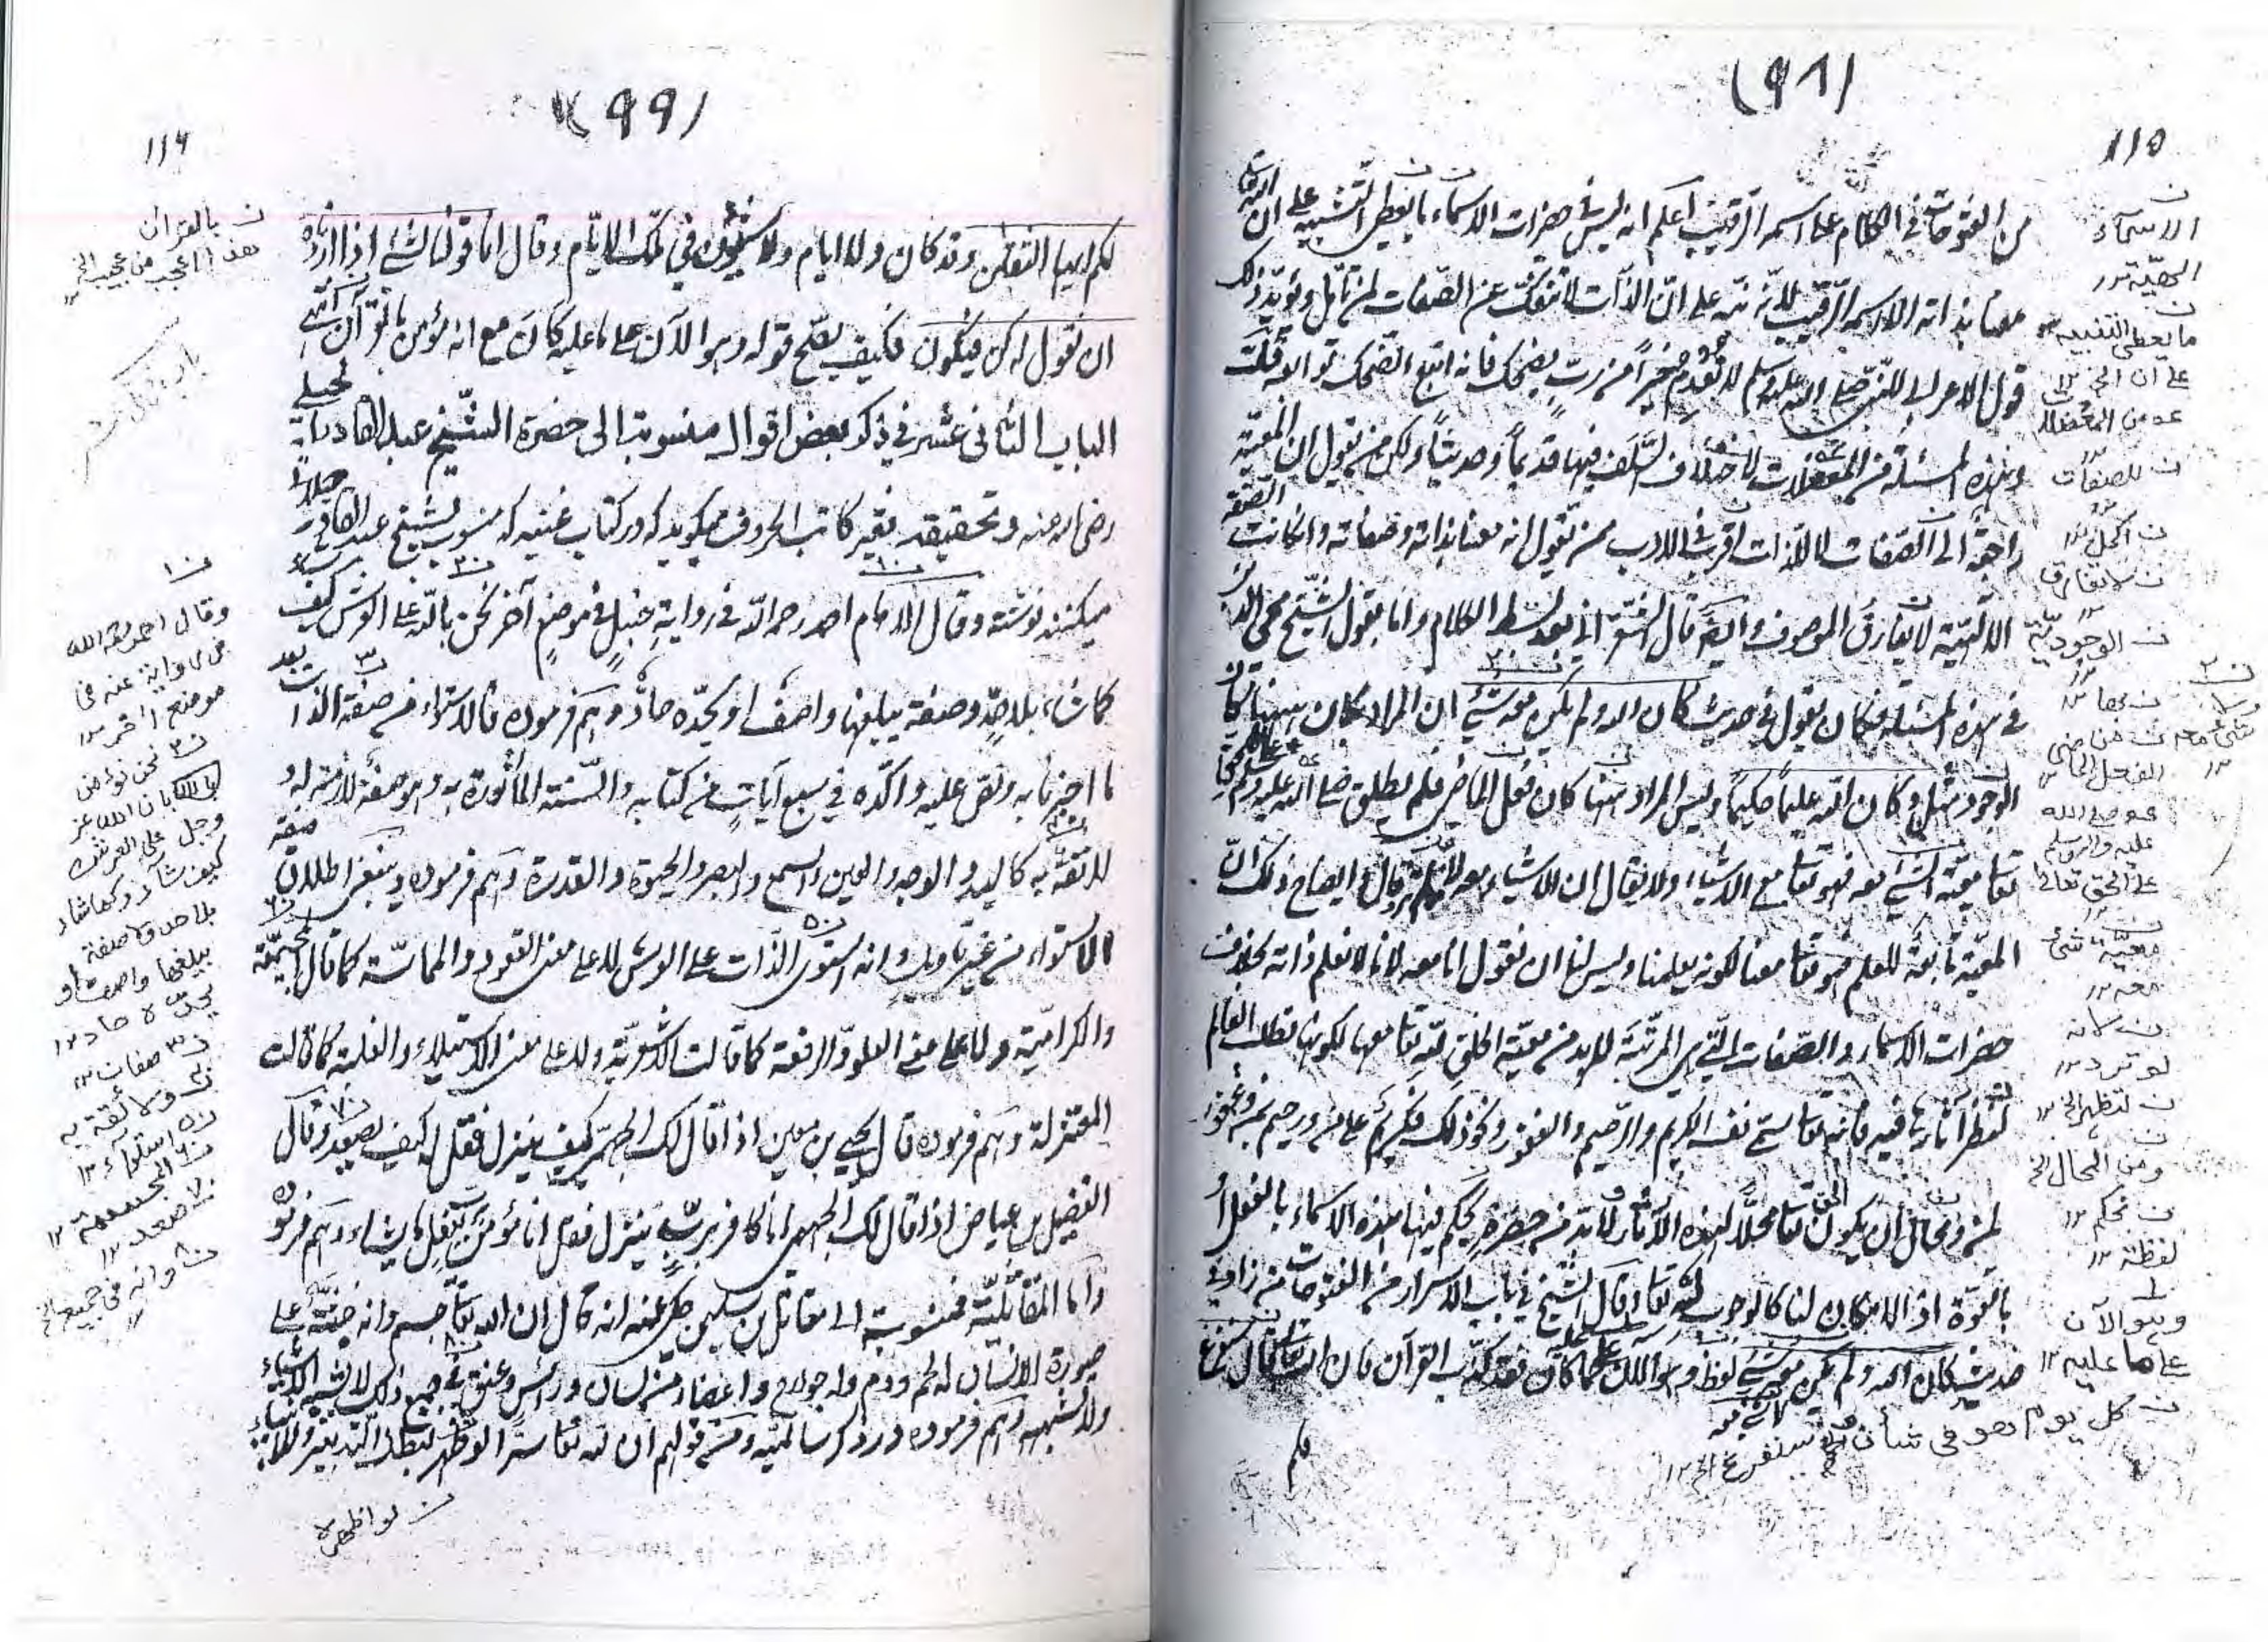 (٩٨)
١١٥
من الفتوحات في الكلام على اسمه الرقيب اعلم انه ليس في حضرات الاسماء ما يعطي التنبيه على ان الله تعالى
معنا بذاته الا اسمه الرقيب لانه نبه على ان الذات لا تنفك عن الصفات لمن تأمل ويؤيد ذلك
قول الاعرابي للنبي صلى الله عليه وسلم لا نعدم خيرا من رب يضحك فانه اتبع الضحك توابعه قلت
وهذه المسئلة من المعضلات لاختلاف السلف فيها قديما وحديثا ولكن من يقول ان المعية
راجعة الى الصفات لا للذات اقرب في الادب ممن يقول انه معنا بذاته وصفاته وان كانت الصفة
الالهية لا يفارق الموصوف وايضا قال الشعراني بعد بسط الكلام واما بقول الشيخ محي الدين
في هذه المسئلة فكان يقول في حديث كان الله ولم يكن معه شئ ان المراد بكان هنا كان
الوجود مثل وكان الله عليما حكيما وليس المراد منها كان فعل الماضي فلم يطلق صلى الله عليه وسلم
تعالى معية الشئ معه فهو تعالى مع الاشياء ولا يقال ان الاشياء معه وقال ايضاح ذلك ان
المعية تابعة للعلم فهو تعالى معنا لكونه يعلمنا وليس لنا ان نقول انا معه لانا لا نعلم ذاته بخلاف
حضرات الاسماء والصفات التي هي المرتبة لا بد من معية الخلق لله تعالى معها لكونها تطلب العالم
لتظهر آثارها فيه فانه تعالى سمى نفسه الكريم والرحيم والغفور ونحو ذلك فكريم على من ورحيم بمن وغفور
لمن ومحال ان يكون الحق تعالى محلا لهذه الآثار فلا بد من حضرة يحكم فيها هذه الاسماء بالفعل أو
بالقوة اذ الامكان لنا كالوجوب لله تعالى وقال الشيخ في باب الاسرار من الفتوحات من زاد في
حديث كان الله ولم يكن معه شئ لفظ وهو الآن على ما كان فقد كذب القرآن فان الله تعالى قال سنفرغ
الاسماء
الحقية ١٢
ما يعطى التنبيه
على ان الحق
ن للصفات
ن اكمل ١٢
ن لا تفارق
ن الوجودية
ن بها ١٢
ن من ماضى
الفعل الماضى ١٢
صلى الله
عليه وآله وسلم
على الحق تعالى
ن معية شئ
معه ١٢
ن لانه
لو ترد ١٢
ن لتظهر الخ ١٢
ومن المحال الخ
ن تحكم ١٢
لفظة ١٢
وهو الآن
على ما عليه ١٢
ن كل يوم هو في شأن سنفرغ الخ ١٢
(٩٩)
١١٦
لكم ايها الثقلن وقد كان ولا ايام ولا شئون في تلك الايام وقال انما قولنا لشئ اذا اردناه
ان نقول له كن فيكون فكيف يصح قوله وهو الآن على ما عليه كان مع انه مؤمن بالقرآن انتهى
الباب الثاني عشر في ذكر بعض اقوال منسوبة الى حضرة الشيخ عبد القادر الجيلي
رضي الله عنه وتحقيقه فقير كاتب الحروف ميگويد كه در كتاب غنيه كه منسوب بشيخ عبد القادر جيلاني
ميكنند نوشته وقال الامام احمد رحمه الله في رواية حنبل في موضع آخر نحن بالله على العرش كيف شاء
كما شاء بلا حد وصفة يبلغها واصف او يحده حاد وهم فرموده فالاستواء من صفة الذات بعد
ما اخبرنا به ونص عليه واكده في سبع آيات من كتابه والسنة المأثورة به وهو صفة لازمة له
للائقة به كاليد والوجه والعين والسمع والبصر والحيوة والقدرة وهم فرموده وينبغي اطلاق صفة
الاستواء من غير تأويل وانه استوى الذات على العرش لا على معنى القعود والمماسة كما قال المجسمة
والكرامية ولا على معنى العلو والرفعة كما قالت الاشعرية ولا على معنى الاستيلاء والغلبة كما قالت
المعتزلة وهم فرموده قال يحيى بن معين اذا قال لك الجهمي كيف ينزل فقل له كيف يصعد وقال
الفضيل بن عياض اذا قال لك الجهمي انا كافر برب ينزل فقل انا مؤمن برب يفعل ما يشاء وهم فرموده
واما المقاتلية فمنسوبة الى مقاتل بن سليمن حكى عنه انه قال ان الله تعالى جسم وانه جثة على
صورة الانسان له لحم ودم وله جوارح واعضاء من لسان ورأس وعنق في جميع ذلك لا يشبه الاشياء
ولا تشبهه وهم فرموده در ذكر سالميه ومن قولهم ان لله تعالى سرا لو اظهر لبطل التدبير وللانبياء
ن بالقرآن
هذا اعجب من عجيب الخ ١٢
ن١
وقال احمد رحمه الله
في رواية عنه في
موضع آخر ١٢
ن٢ نحن نؤمن
بان الله عز
وجل على العرش
كيف شاء وكما شاء
بلا حد ولا صفة
يبلغها واصف او
يحده حاد ١٢
ن٣ صفات ١٢
ن٤ ولائقة به
ن٥ استواء ١٢
ن٦ المجسمة ١٢
ن٧ صعد ١٢
ن٨ وانه في جميع الخ
١٢
ن لو اظهره